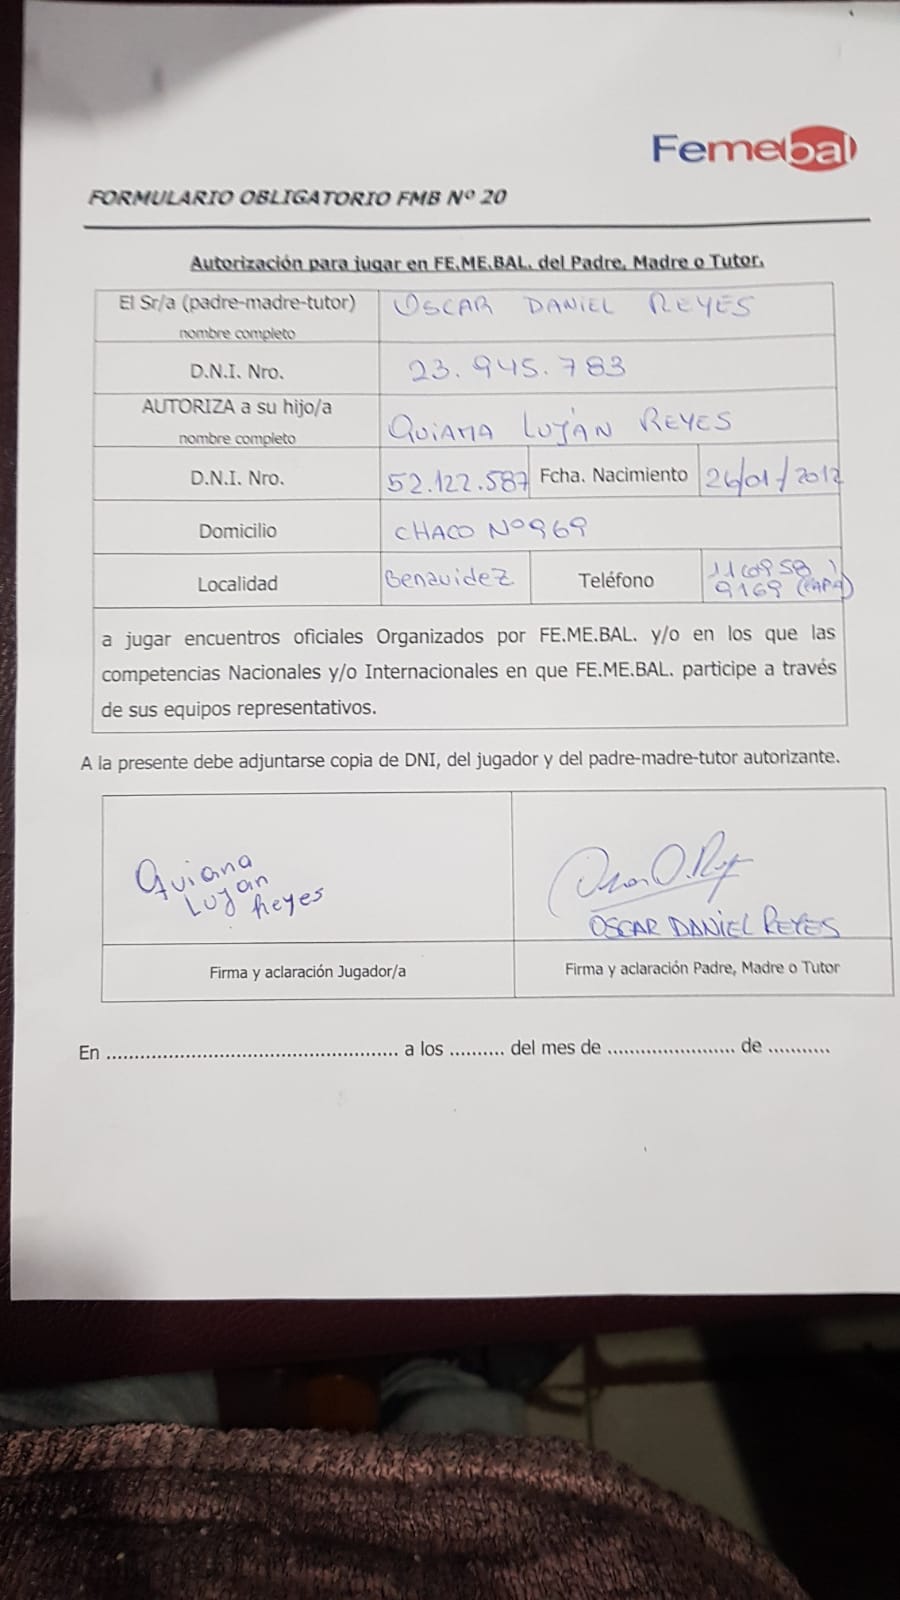 Femebal
FORMULARIO OBLIGATORIO FMB Nº 20
Autorización para jugar en FE.ME.BAL. del Padre, Madre o Tutor.
El Sr/a (padre-madre-tutor) nombre completo OSCAR DANIEL REYES
D.N.I. Nro. 23.945.783
AUTORIZA a su hijo/a nombre completo QUIANA LUJÁN REYES
D.N.I. Nro. 52.122.587 Fcha. Nacimiento 26/01/2012
Domicilio CHACO Nº 969
Localidad Benavidez Teléfono 116958
9169 (PAPA)
a jugar encuentros oficiales Organizados por FE.ME.BAL. y/o en los que las
competencias Nacionales y/o Internacionales en que FE.ME.BAL. participe a través
de sus equipos representativos.
A la presente debe adjuntarse copia de DNI, del jugador y del padre-madre-tutor autorizante.
Quiana
Luján
Reyes
OSCAR DANIEL REYES
Firma y aclaración Jugador/a Firma y aclaración Padre, Madre o Tutor
En .................................................... a los .......... del mes de ....................... de ...........